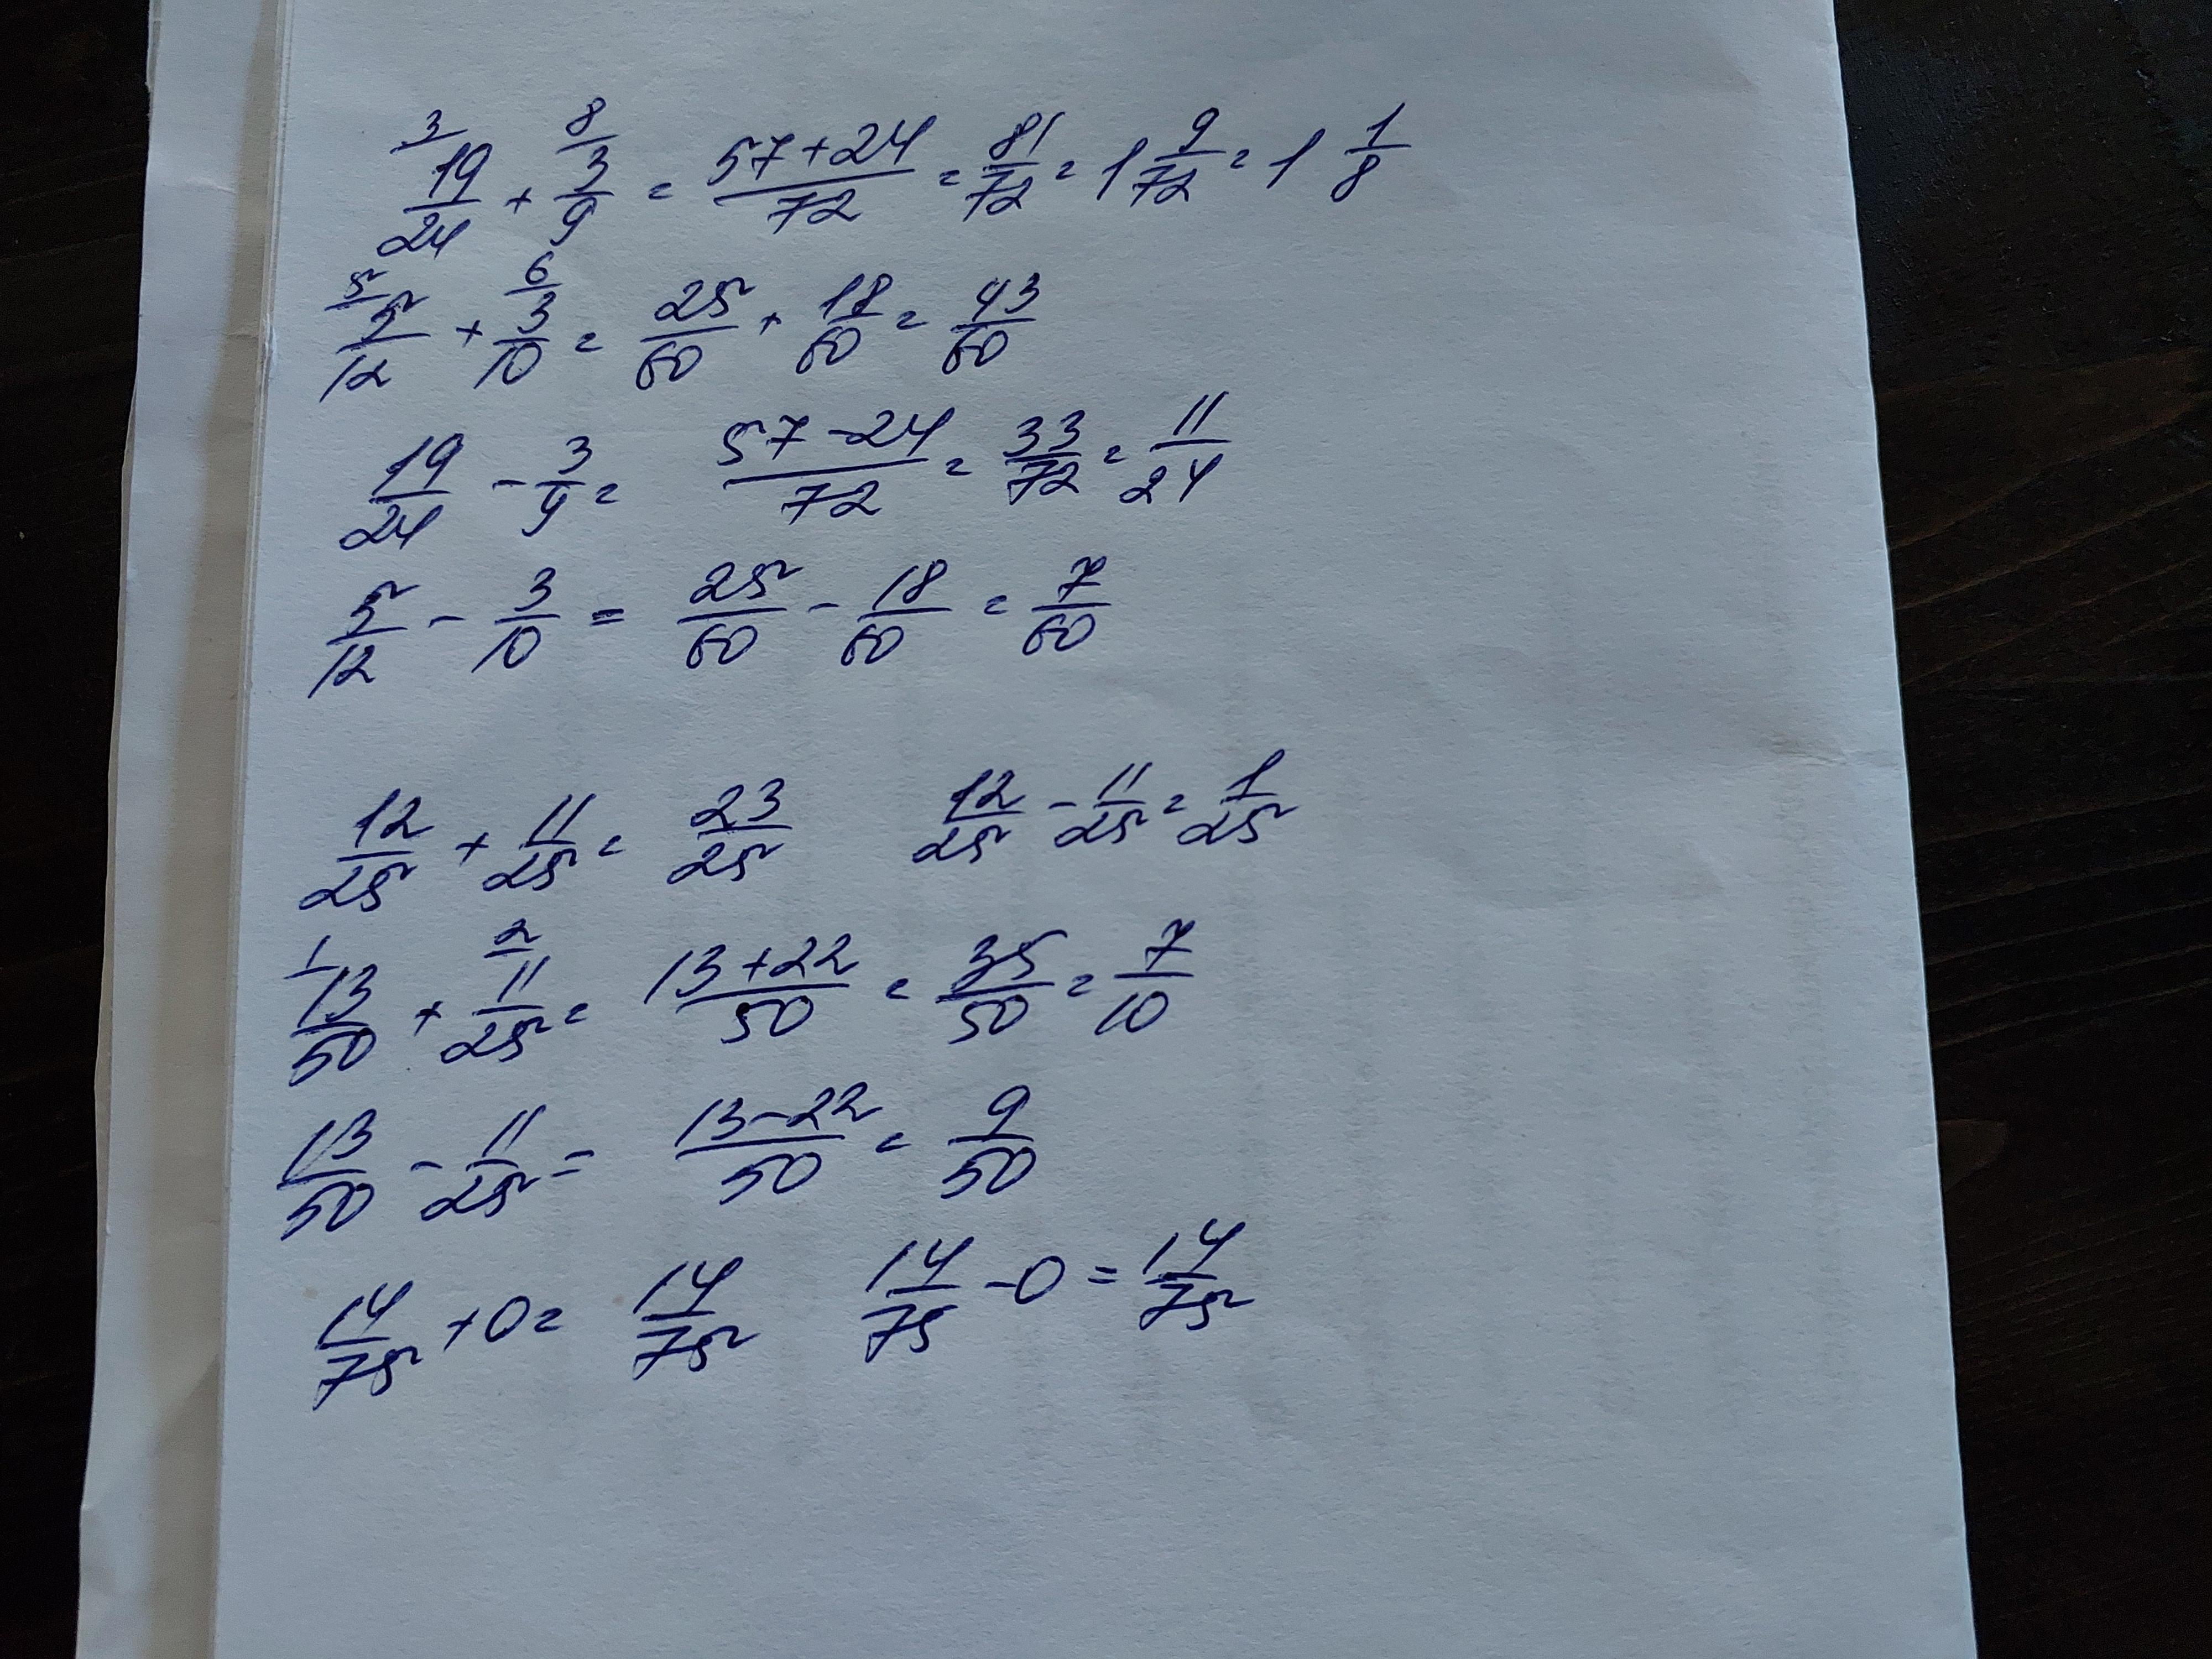 3/ 19/24 + 8/ 3/9 = (57+24)/72 = 81/72 = 1 9/72 = 1 1/8
5/ 5/12 + 6/ 3/10 = 25/60 + 18/60 = 43/60
19/24 - 3/9 = (57-24)/72 = 33/72 = 11/24
5/12 - 3/10 = 25/60 - 18/60 = 7/60
12/25 + 11/25 = 23/25 12/25 - 11/25 = 1/25
1/ 13/50 + 2/ 11/25 = (13+22)/50 = 35/50 = 7/10
13/50 - 11/25 = (13-22)/50 = 9/50
14/75 + 0 = 14/75 14/75 - 0 = 14/75